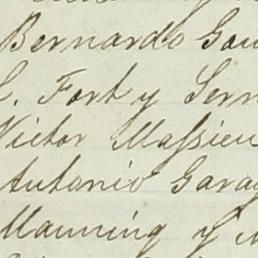 Bernardo Gon
C. Fort y Serr
Victor Massieu
Antonio Garay
Manning y